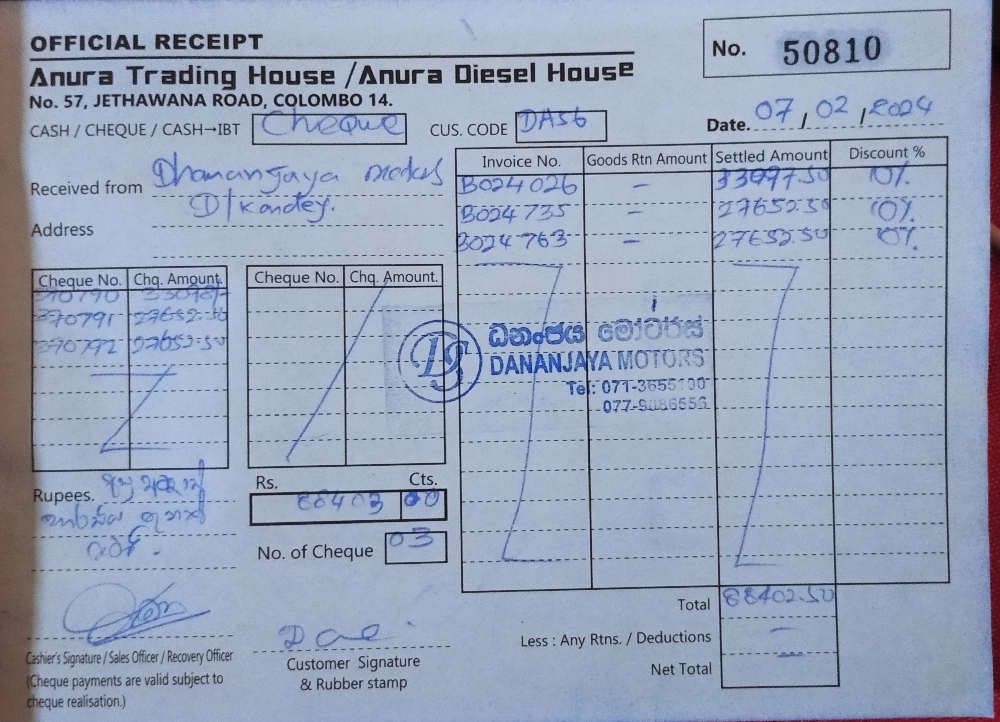 OFFICIAL RECEIPT
No. 50810
Anura Trading House /Anura Diesel House
No. 57, JETHAWANA ROAD, COLOMBO 14.
CASH / CHEQUE / CASH→IBT Cheque CUS. CODE DA56 Date. 07 / 02 / 2024
Received from Dhananjaya motors
D/kandey.
Address
Invoice No. Goods Rtn Amount Settled Amount Discount %
B024026 — 33097.50 10%
B024735 — 27652.50 10%
B024763 — 27652.50 10%
Cheque No. Chq. Amount Cheque No. Chq. Amount.
370790 33098/-
370791 27652.50
370792 27652.50
ධනංජය මෝටර්ස්
DANANJAYA MOTORS
Tel: 071-3655
077-9086556
Rupees.
Rs. Cts.
88403 00
No. of Cheque 03
Total 88402.50
Less : Any Rtns. / Deductions —
Net Total
Cashier's Signature / Sales Officer / Recovery Officer
(Cheque payments are valid subject to
cheque realisation.)
Customer Signature
& Rubber stamp